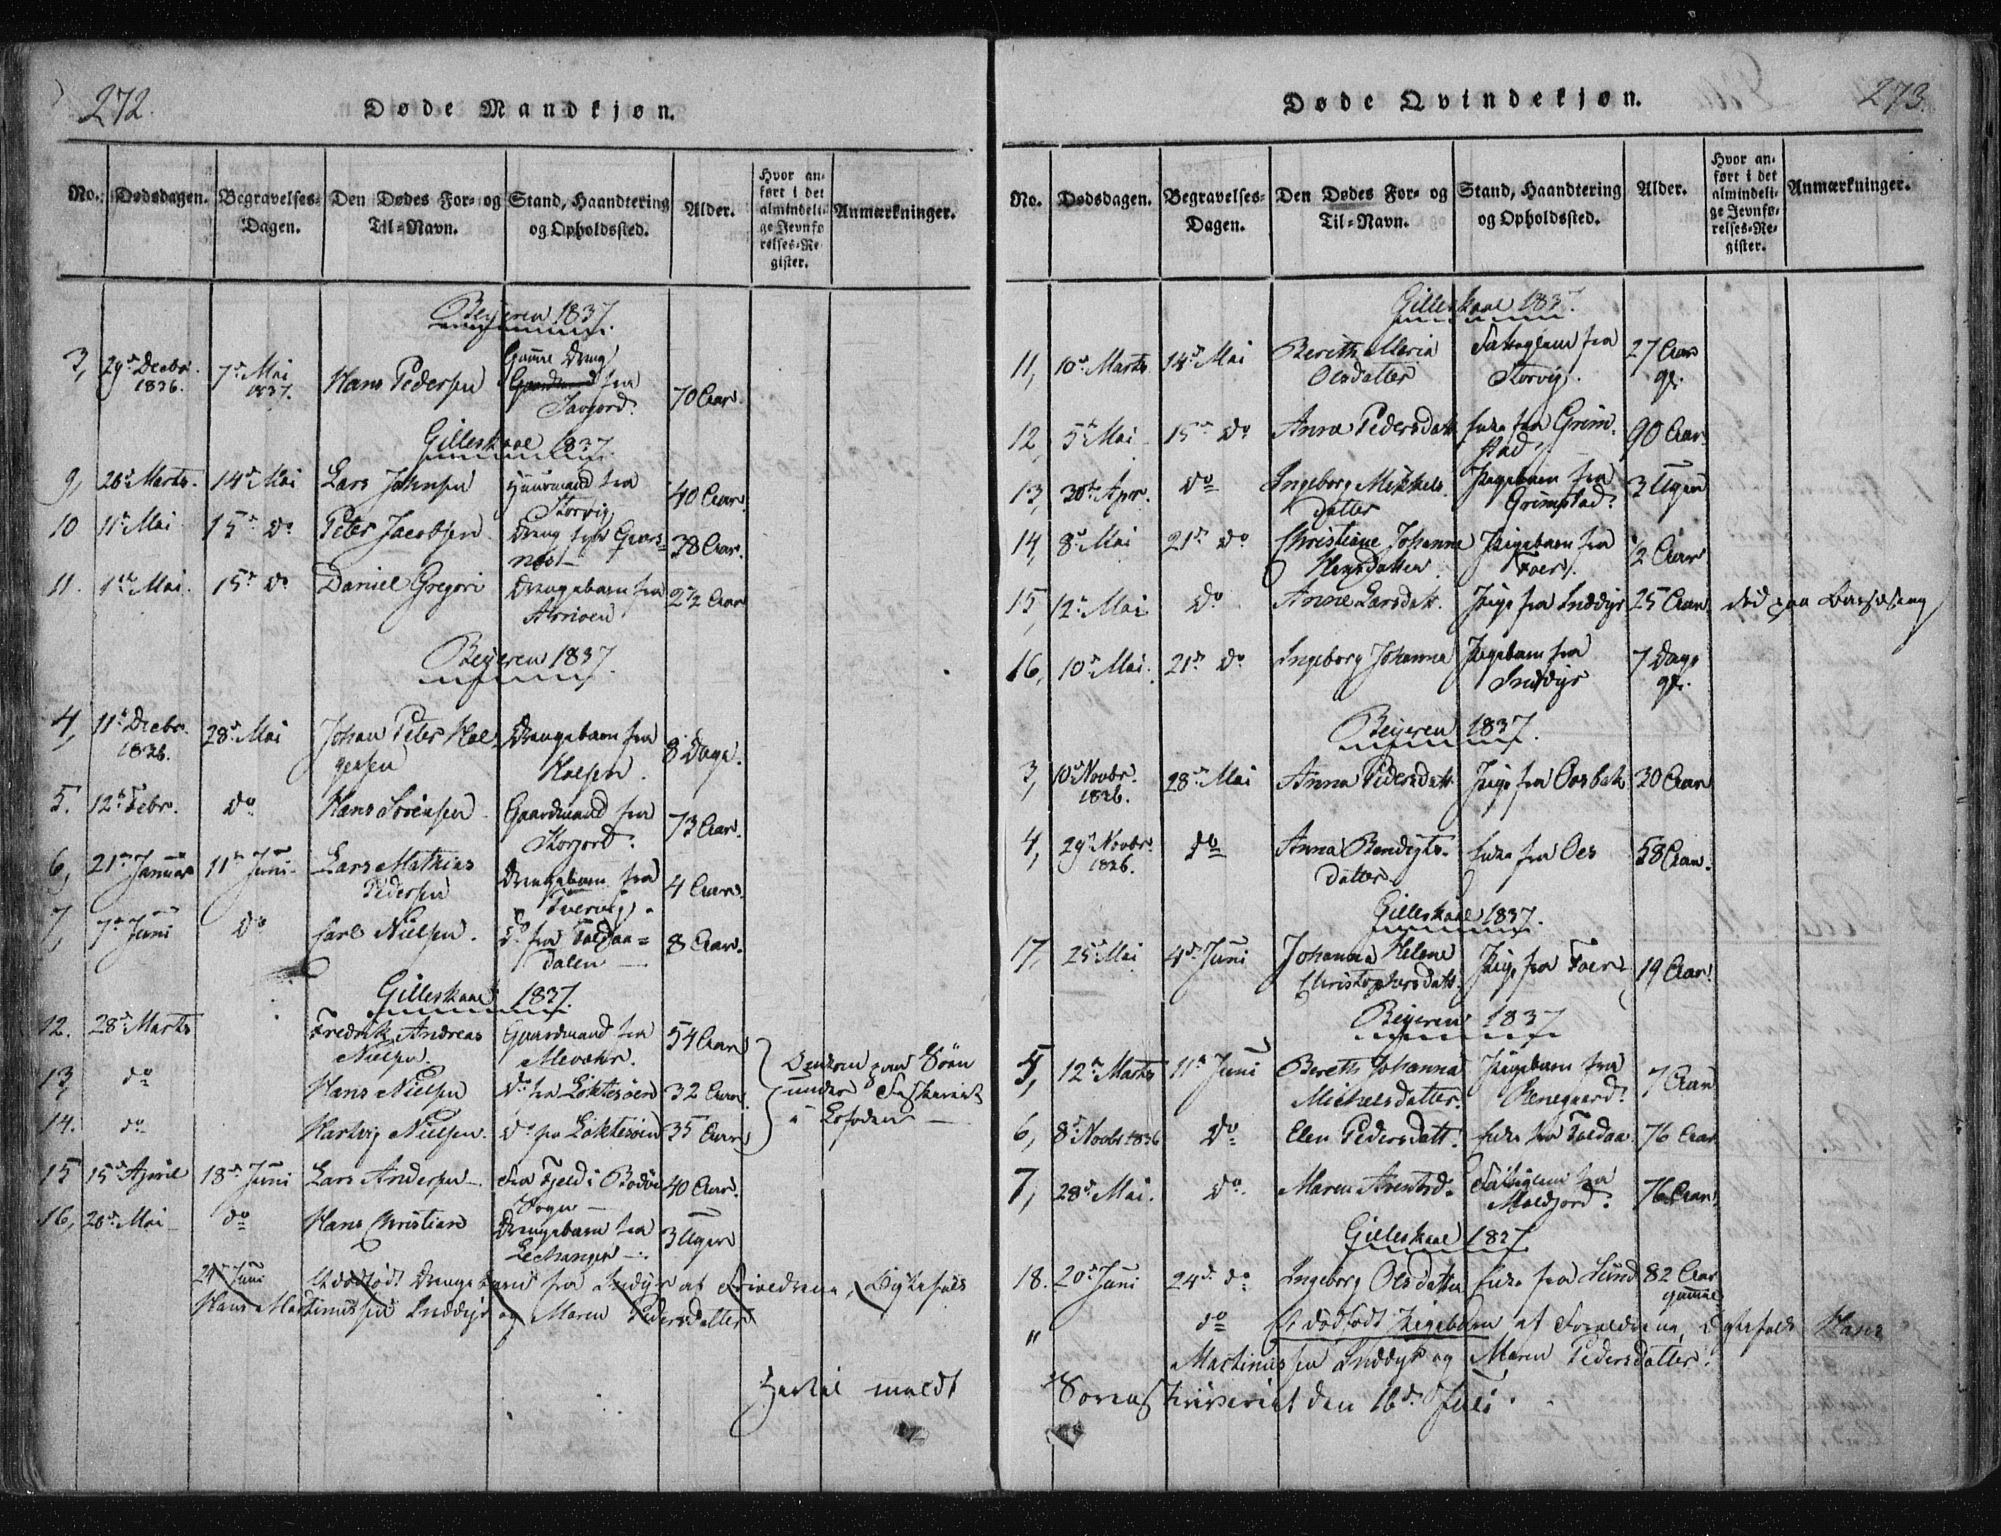 272.
Døde Mandkjøn.
No. Dødsdagen. Begravelses-Dagen. Den Dødes For- og Til-Navn. Stand, Haandtering og Opholdssted. Alder. Hvor anført i det almindelige Jevnførelses-Register. Anmærkninger.
Beyeren 1837.
3, 29d Decbr. 1836. 7d Mai 1837. Hans Pedersen fra 70 Aar.
Gilleskaal 1837.
9, 26d Marts. 14d Mai Lars Johnsen Huusmand fra Storvig 40 Aar.
10 11d Mai 15d do Peter Jacobsen Dreng 38 Aar.
11. 1ste Mai. 15d do Daniel Gregori Drengebarn fra 2 1/2 Aar
Beyeren 1837.
4, 11d Decbr. 1836. 28d Mai Johan Peter Holgersen Drengebarn fra 8 Dage.
5. 12d Febr. do Hans Sörensen Gaardmand fra Storjord. 73 Aar.
6, 21d Januar 11d Juni Lars Mathias Pedersen Drengebarn fra Tvervig. 4 Aar.
7, 7d Juni do Carl Nielsen. do fra Toldaadalen 8 Aar.
Gilleskaal 1837.
12. 28d Marts Fredrik Andreas Nielsen Gaardmand fra Mevær. 54 Aar
13, do Hans Nielsen do fra Löktesöen 32 Aar
14. do Hartvig Nielsen. do fra Löktesöen 35 Aar
Druknede paa Söen under Fiskeriet i Lofoden
15 15d April 18d Juni Lars Andersen fra Fjeld i Bodöe Sogn 40 Aar.
16, 20d Mai do Hans Christian Drengebarn fra 3 Uger
24d Juni Et dödfödt Drengebarn fra Inddyr af Forældrene,
Hans Martinussen Inddyr og Maren Pedersdatter
Hertil meldt
273.
Døde Qvindekjøn.
No. Dødsdagen. Begravelses-Dagen. Den Dødes For- og Til-Navn. Stand, Haandtering og Opholdssted. Alder. Hvor anført i det almindelige Jevnførelses-Register. Anmærkninger.
Gilleskaal 1837.
11, 10d Marts 14d Mai Bereth Maria Olsdatter fra Storvig. 27 Aar gl.
12, 5d Mai 15d do Anna Pedersdatt. Enke fra Grimstad 90 Aar
13, 30te Apr. do Ingeborg Mikkelsdatter Pigebarn fra Grimstad. 3 Uger
14, 8d Mai 21d do Christiane Johanne Hansdatter Pigebarn fra Foer. 1/2 Aar
15, 12d Mai do Anne Larsdatt. Pige fra Inddyr 25 Aar. död paa Barselseng
16, 10d Mai. 21d do Ingeborg Johanna Pigebarn fra Inddyr 7 Dage gl.
Beyeren 1837.
3, 10d Novbr. 1836. 28d Mai Anna Pedersdatt. Pige fra Osbak 30 Aar
4, 29d Novbr. 1836. do Anna Bendigtsdatter Enke fra Oes 58 Aar.
Gilleskaal 1837.
17, 25d Mai 4d Juni Johanna Helene Christophersdatt. Pige fra Foer 19 Aar.
Beyeren 1837
5, 12d Marts 11d Juni Bereth Johanna Michelsdatter. Pigebarn fra 7 Aar
6, 8d Novbr 1836 do Elen Pedersdatt. Enke fra Toldaa 76 Aar
7, 28d Mai. do Maren Arentsd. fra Moldjord. 76 Aar.
Gilleskaal 1837.
18. 20d Juni 24d do Ingeborg Olsdatter Enke fra Sund 82 Aar gammel
" do Et dödfödt Pigebarn af Forældrene, Hans
Martinussen Inddyr og Maren Pedersdatter.
Sorenskriveriet den 16d Juli.